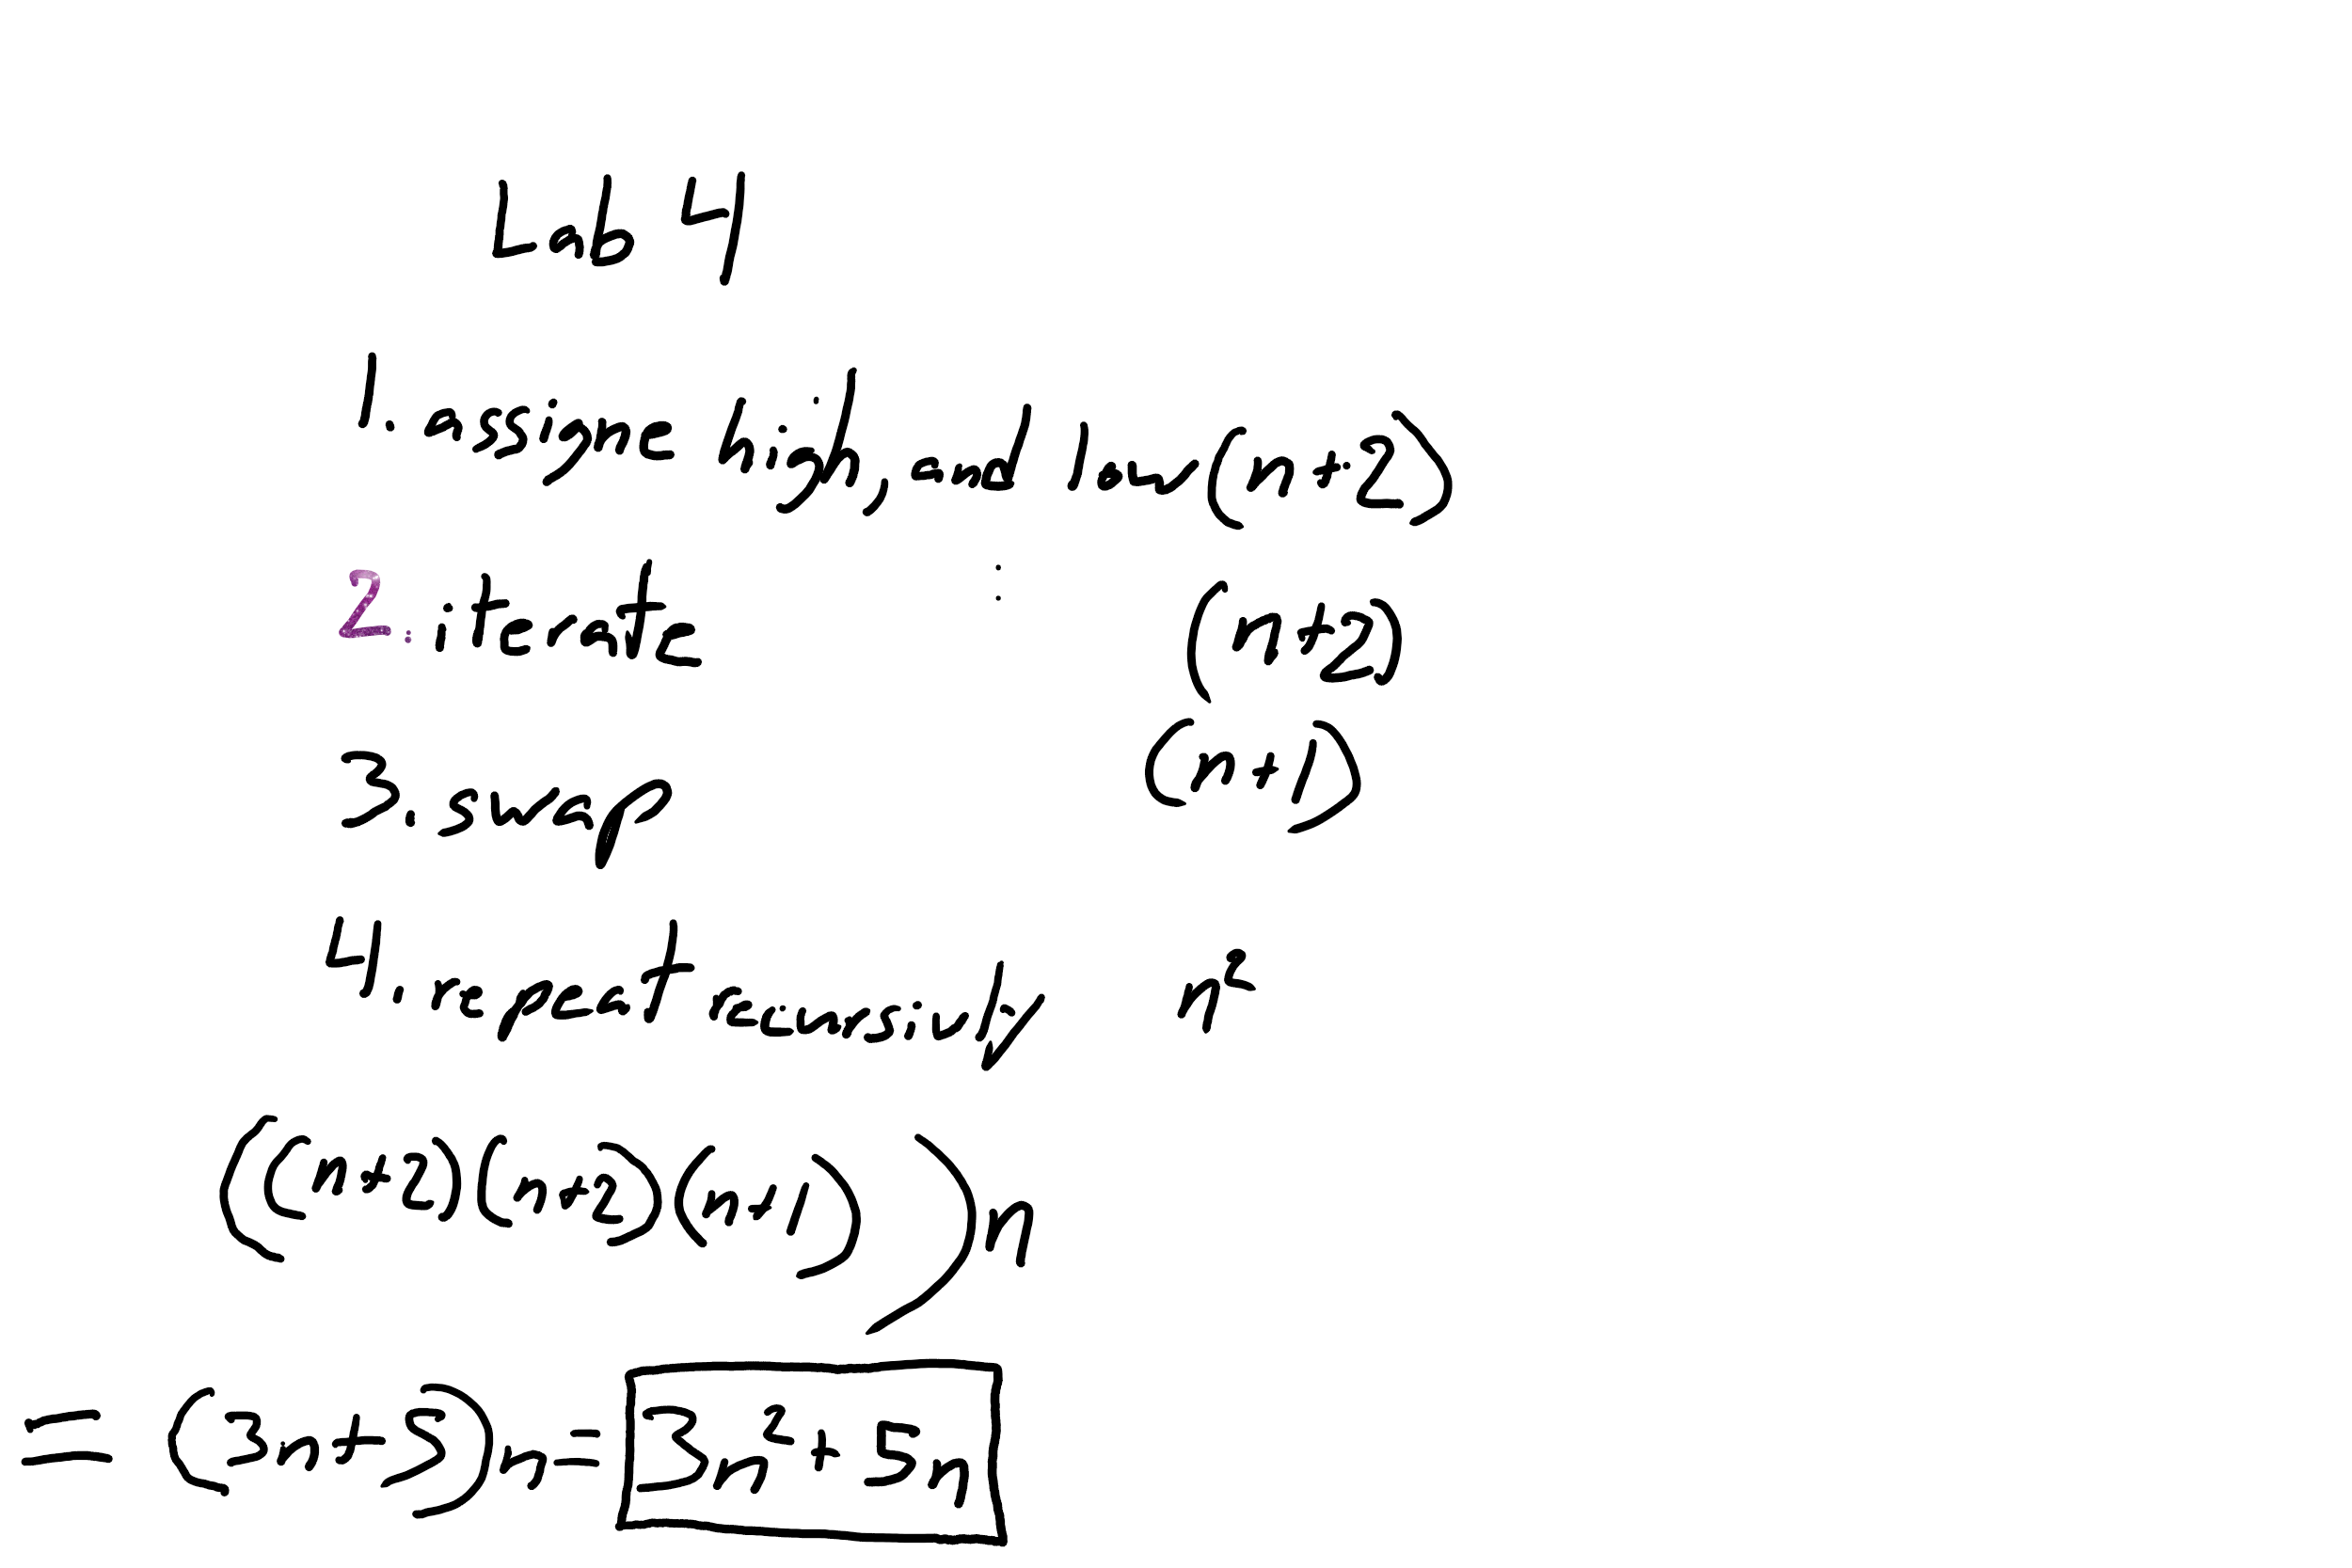 Lab 4
1. assigne high, and low (n+2)
2. iterate (n+2)
3. swap (n+1)
4. repeat recursivly n²
((n+2)(n+2)(n+1))n
= (3n+5)n = 3n²+5n